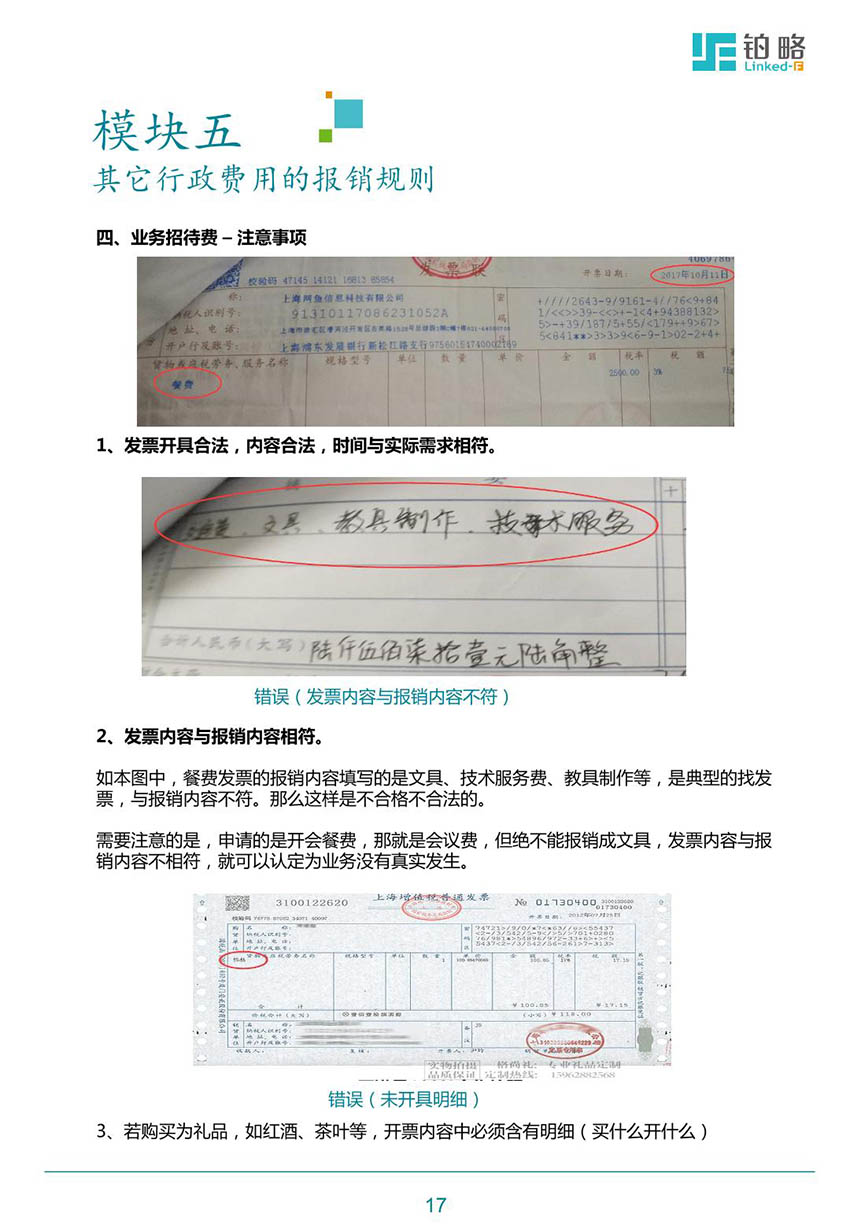 铂略
Linked-F
模块五
其它行政费用的报销规则
四、业务招待费 – 注意事项
发票联
开票日期: 2017年10月11日
校验码 47145 14121 16813 85854
称: 上海网鱼信息科技有限公司
纳税人识别号: 91310117086231052A
地 址、电 话:
开户行及账号: 上海浦东发展银行新松江路支行
密
码
+////2643-9/9161-4//76<9+84
1/<<>>39-<<>+-1<4+94388132>
5>-+39/187/5+55/<179++9>67>
5<841**>3>>9<6-9-1>02-2+4+
货物或应税劳务、服务名称 规格型号 单位 数 量 单 价 金 额 税率 税 额
餐费 2500.00 3%
1、发票开具合法，内容合法，时间与实际需求相符。
文具、教具制作、技术服务
合计人民币(大写) 陆仟伍佰柒拾壹元陆角整
错误（发票内容与报销内容不符）
2、发票内容与报销内容相符。
如本图中，餐费发票的报销内容填写的是文具、技术服务费、教具制作等，是典型的找发
票，与报销内容不符。那么这样是不合格不合法的。
需要注意的是，申请的是开会餐费，那就是会议费，但绝不能报销成文具，发票内容与报
销内容不相符，就可以认定为业务没有真实发生。
3100122620 上海增值税普通发票 № 01730400
开票日期: 2012年07月25日
货物或应税劳务名称 规格型号 单位 数 量 单 价 金 额 税率 税 额
合 计 ￥100.85 ￥17.15
价税合计(大写) (小写) ￥118.00
实物拍摄 格尚礼: 专业礼品定制
品质保证 定制热线: 15962882568
错误（未开具明细）
3、若购买为礼品，如红酒、茶叶等，开票内容中必须含有明细（买什么开什么）
17